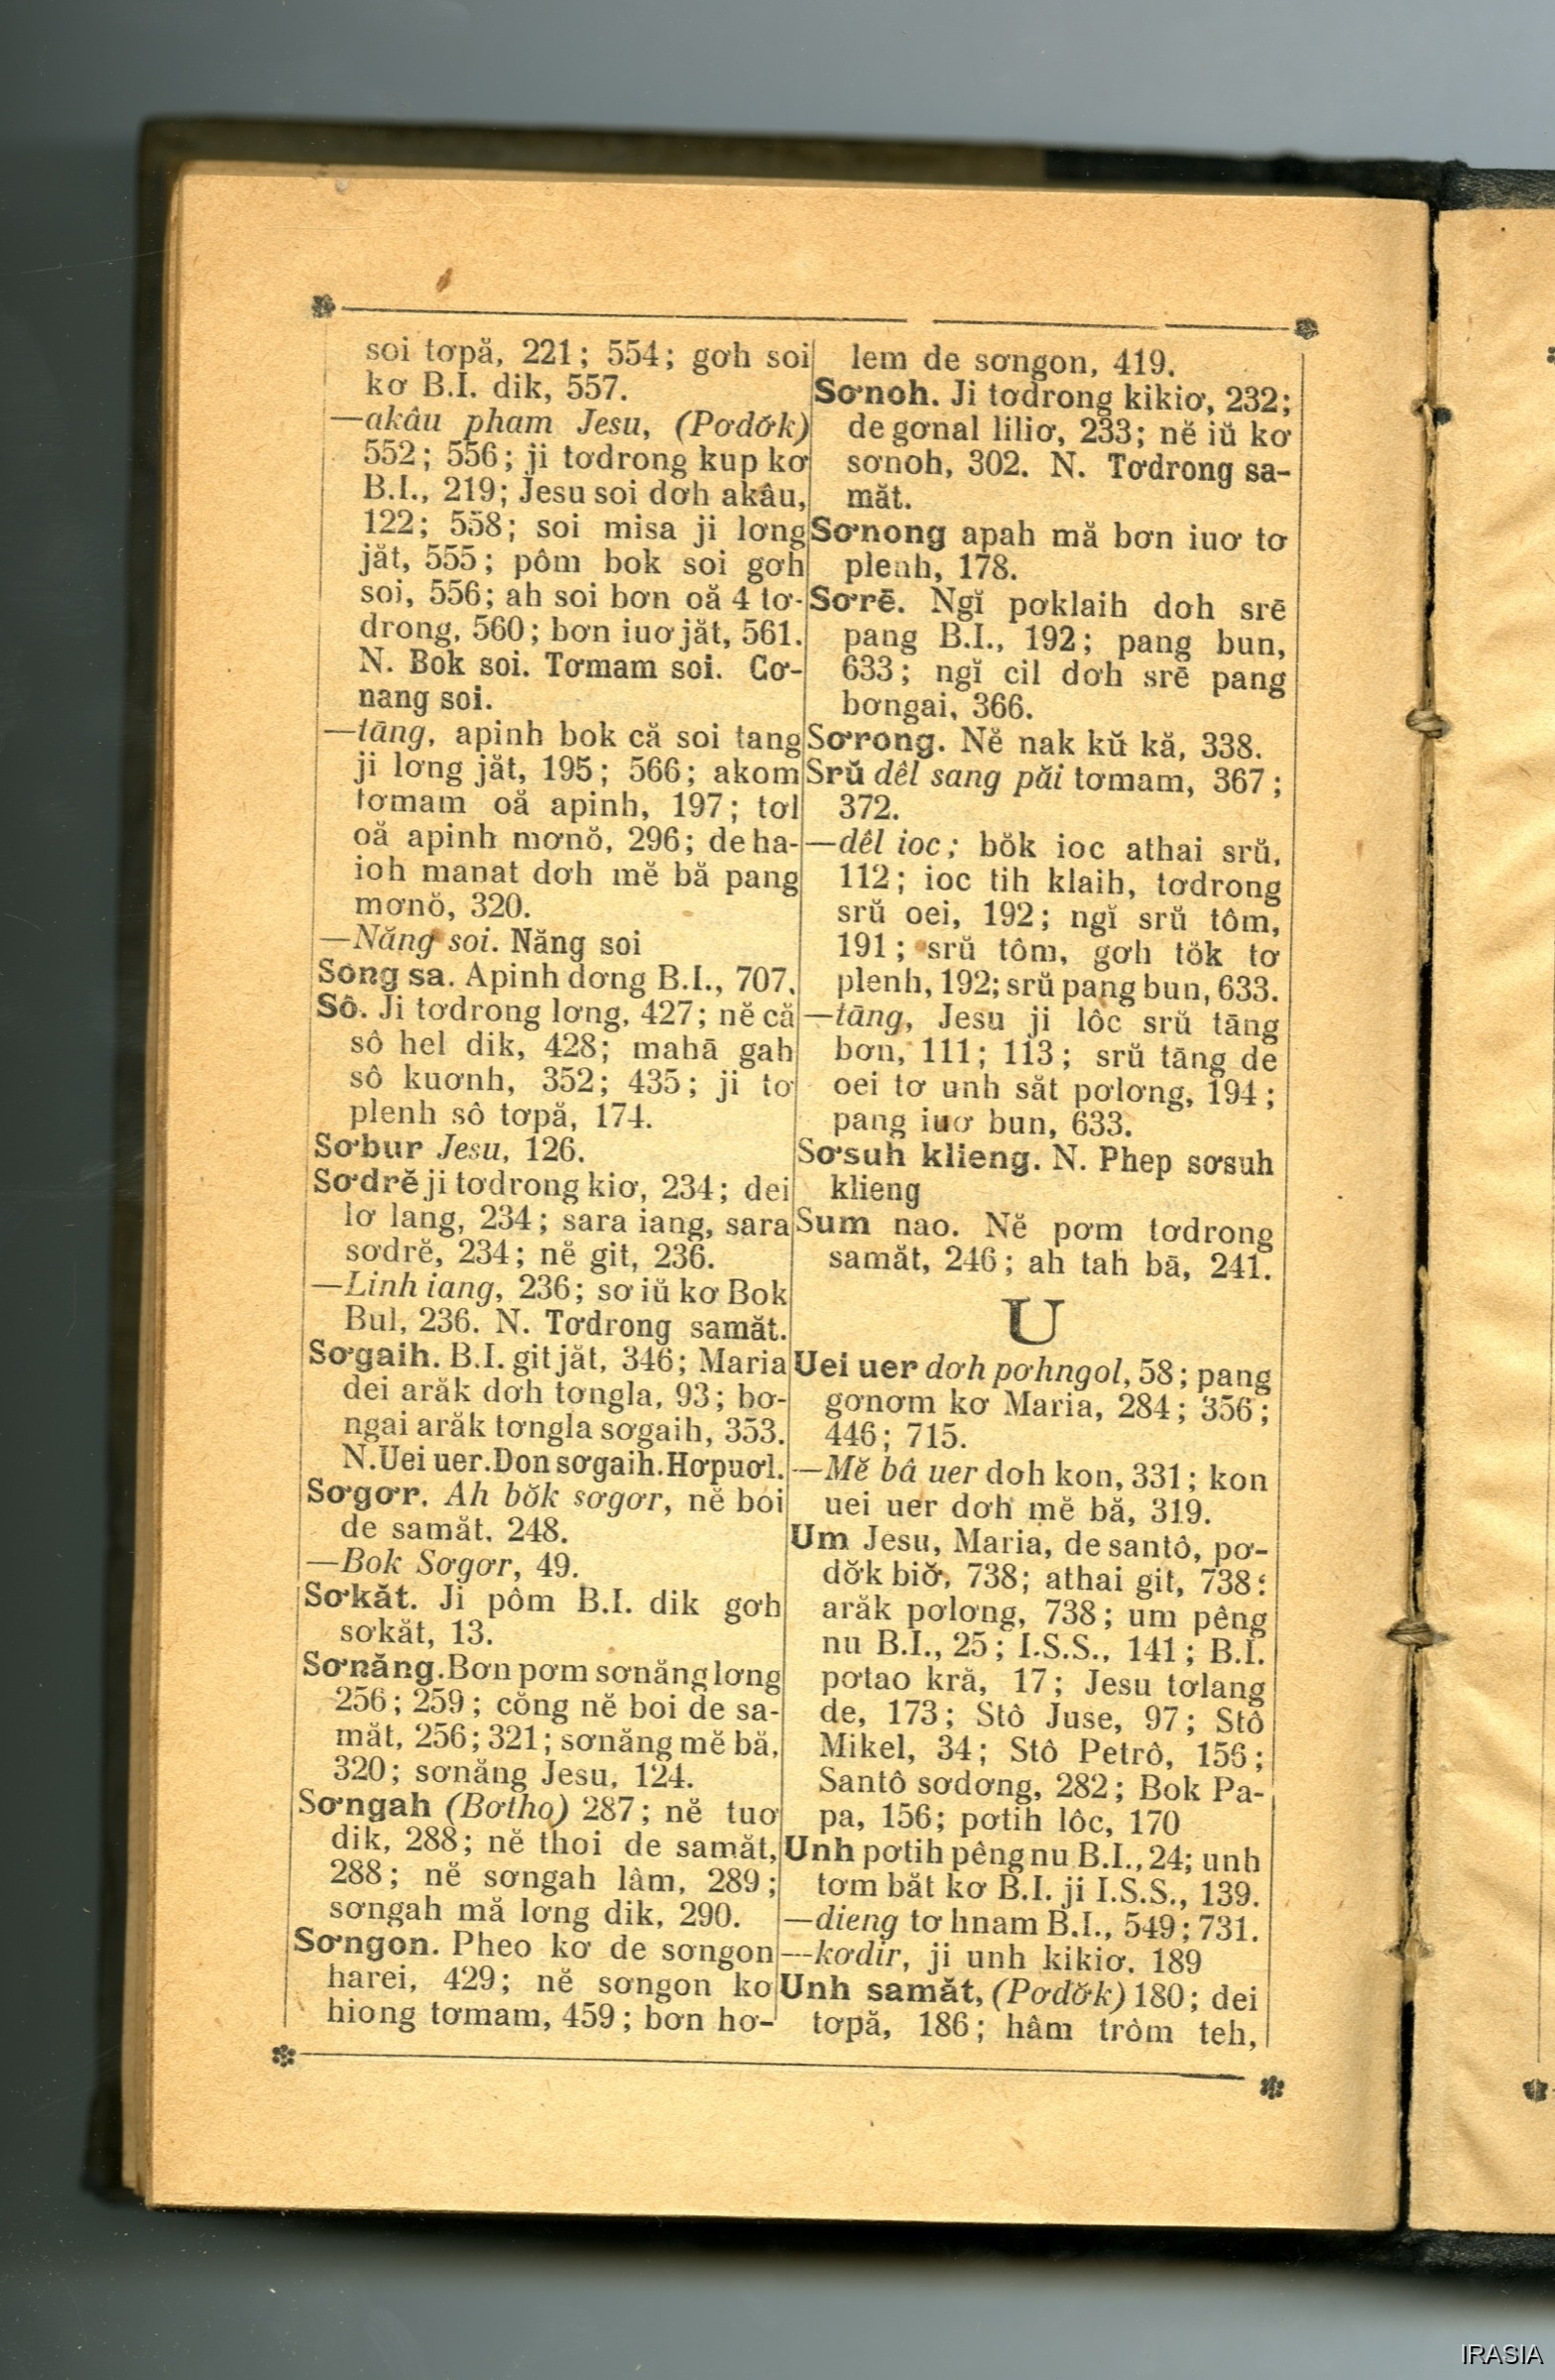 soi tơpă, 221; 554; gơh soi
kơ B.I. dik, 557.
—akâu pham Jesu, (Pơdơ̆k)
552; 556; ji tơdrong kup kơ
B.I., 219; Jesu soi dơh akâu,
122; 558; soi misa ji lơng
jăt, 555; pôm bok soi gơh
soi, 556; ah soi bơn oă 4 tơ-
drong, 560; bơn iuơ jăt, 561.
N. Bok soi. Tơmam soi. Cơ-
nang soi.
—tāng, apinh bok că soi tang
ji lơng jăt, 195; 566; akom
tơmam oă apinh, 197; tơl
oă apinh mơnŏ, 296; de ha-
ioh manat dơh mĕ bă pang
mơnŏ, 320.
—Năng soi. Năng soi
Sông sa. Apinh dơng B.I., 707.
Sô. Ji tơdrong lơng, 427; nĕ că
sô hel dik, 428; mahā gah
sô kuơnh, 352; 435; ji tơ
plenh sô tơpă, 174.
Sơbur Jesu, 126.
Sơdrĕ ji tơdrong kiơ, 234; dei
lơ lang, 234; sara iang, sara
sơdrĕ, 234; nĕ git, 236.
—Linh iang, 236; sơ iŭ kơ Bok
Bul, 236. N. Tơdrong samăt.
Sơgaih. B.I. git jăt, 346; Maria
dei arăk dơh tơngla, 93; bơ-
ngai arăk tơngla sơgaih, 353.
N. Uei uer. Don sơgaih. Hơpuơl.
Sơgơr. Ah bŏk sơgơr, nĕ boi
de samăt. 248.
—Bok Sơgơr, 49.
Sơkăt. Ji pôm B.I. dik gơh
sơkăt, 13.
Sơnăng. Bơn pơm sơnăng lơng
256; 259; cŏng nĕ boi de sa-
măt, 256; 321; sơnăng mĕ bă,
320; sơnăng Jesu, 124.
Sơngah (Bơthọ) 287; nĕ tuơ
dik, 288; nĕ thoi de samăt,
288; nĕ sơngah lâm, 289;
sơngah mă lơng dik, 290.
Sơngon. Pheo kơ de sơngon
harei, 429; nĕ sơngon kơ
hiong tơmam, 459; bơn hơ-
lem de sơngon, 419.
Sơnoh. Ji tơdrong kikiơ, 232;
de gơnal liliơ, 233; nĕ iŭ kơ
sơnoh, 302. N. Tơdrong sa-
măt.
Sơnong apah mă bơn iuơ tơ
plenh, 178.
Sơrē. Ngĭ pơklaih dơh srē
pang B.I., 192; pang bun,
633; ngĭ cil dơh srē pang
bơngai, 366.
Sơrong. Nĕ nak kŭ kă, 338.
Srŭ dêl sang păi tơmam, 367;
372.
—dêl ioc; bŏk ioc athai srŭ,
112; ioc tih klaih, tơdrong
srŭ oei, 192; ngĭ srŭ tôm,
191; srŭ tôm, gơh tŏk tơ
plenh, 192; srŭ pang bun, 633.
—tāng, Jesu ji lôc srŭ tāng
bơn, 111; 113; srŭ tāng de
oei tơ unh săt pơlơng, 194;
pang iuơ bun, 633.
Sơsuh klieng. N. Phep sơsuh
klieng
Sum nao. Nĕ pơm tơdrong
samăt, 246; ah tah bā, 241.
U
Uei uer dơh pơhngol, 58; pang
gơnơm kơ Maria, 284; 356;
446; 715.
—Mĕ bâ uer dơh kon, 331; kon
uei uer dơh mĕ bă, 319.
Um Jesu, Maria, de santô, pơ-
dơ̆k biơ̆, 738; athai git, 738;
arăk pơlơng, 738; um pêng
nu B.I., 25; I.S.S., 141; B.I.
pơtao kră, 17; Jesu tơlang
de, 173; Stô Juse, 97; Stô
Mikel, 34; Stô Petrô, 156;
Santô sơdơng, 282; Bok Pa-
pa, 156; pơtih lôc, 170
Unh pơtih pêng nu B.I., 24; unh
tơm băt kơ B.I. ji I.S.S., 139.
—dieng tơ hnam B.I., 549; 731.
—kơdir, ji unh kikiơ, 189
Unh samăt, (Pơdơ̆k) 180; dei
tơpă, 186; hâm trôm teh,
IRASIA